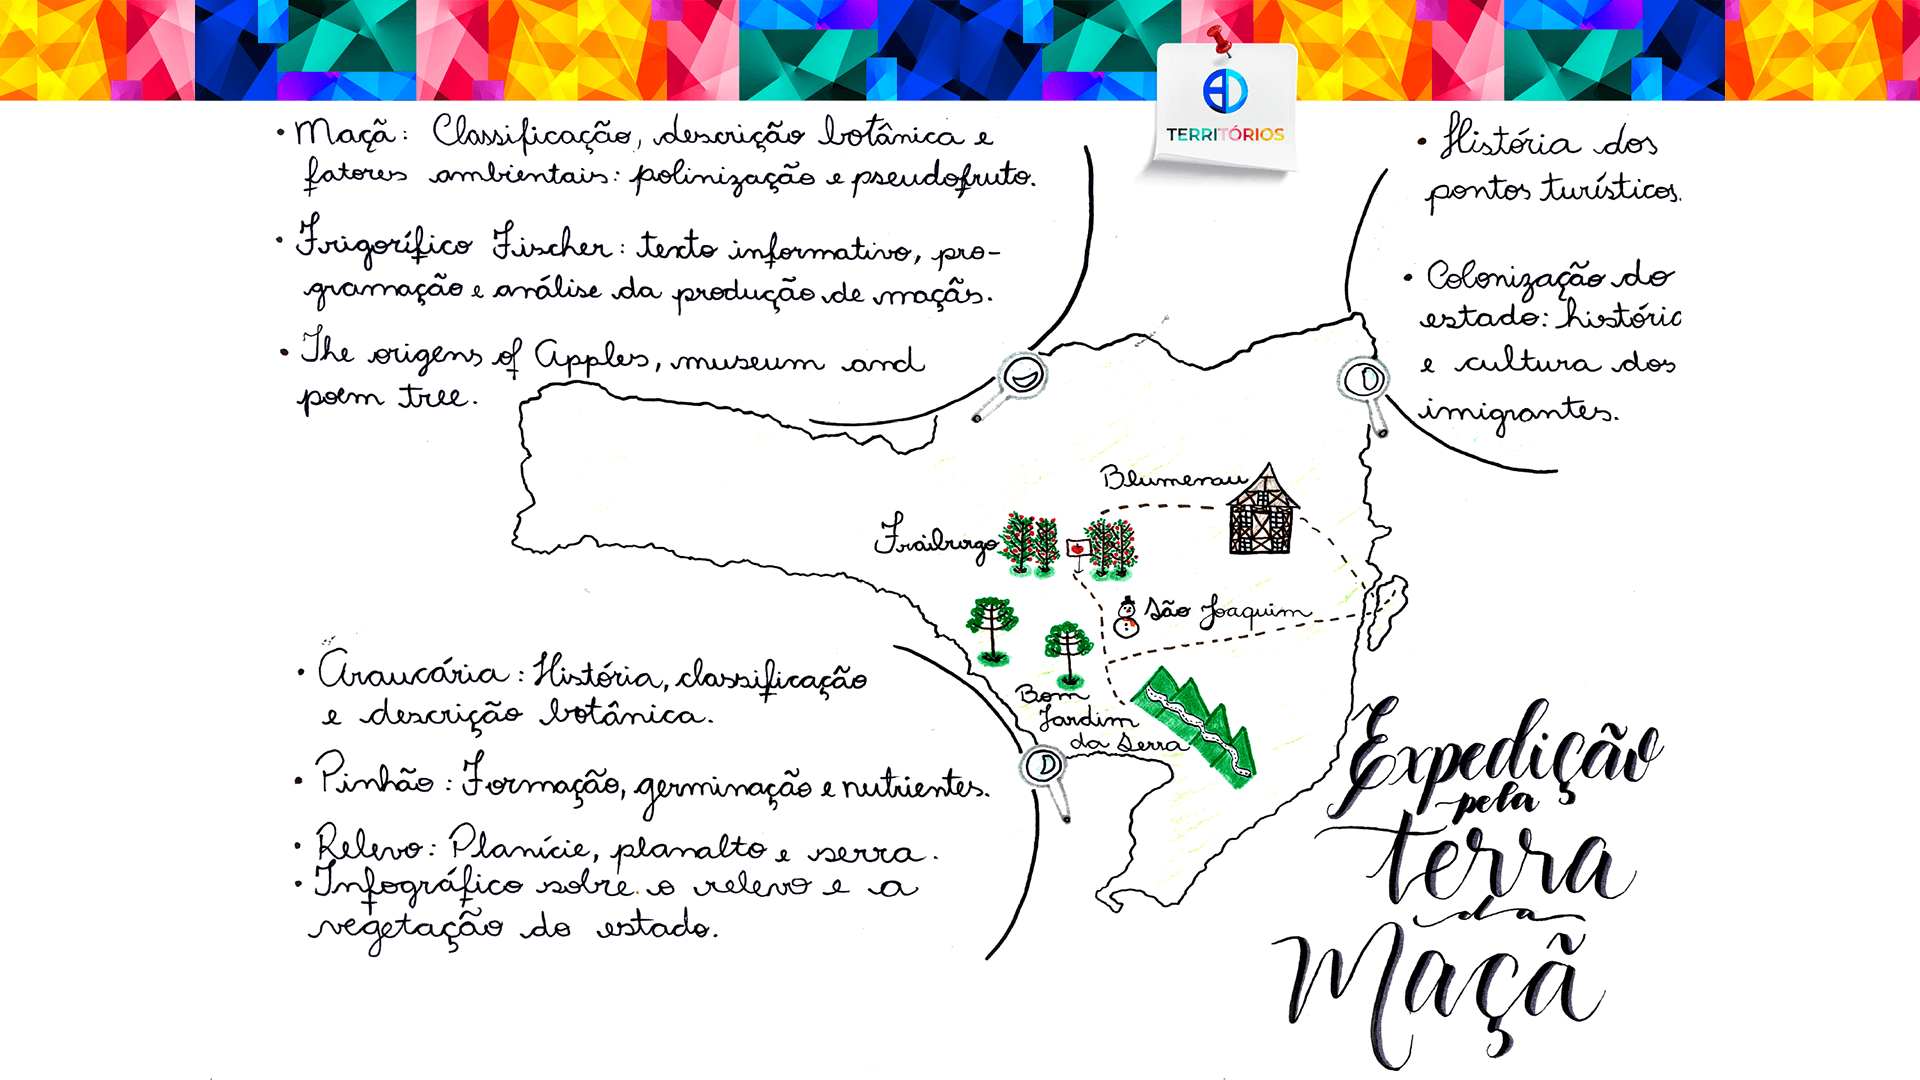 TERRITÓRIOS
• Maçã: Classificação, descrição botânica e
fatores ambientais: polinização e pseudofruto.
• Frigorífico Fischer: texto informativo, pro-
gramação e análise da produção de maçãs.
• The origens of Apples, museum and
poem tree.
• História dos
pontos turísticos.
• Colonização do
estado: histório
e cultura dos
imigrantes.
Blumenau
Fraiburgo
São Joaquim
Bom
Jardim
da Serra
• Araucária: História, classificação
e descrição botânica.
• Pinhão: Formação, germinação e nutrientes.
• Relevo: Planície, planalto e serra.
• Infográfico sobre o relevo e a
vegetação do estado.
Expedição
pela
terra
da
Maçã